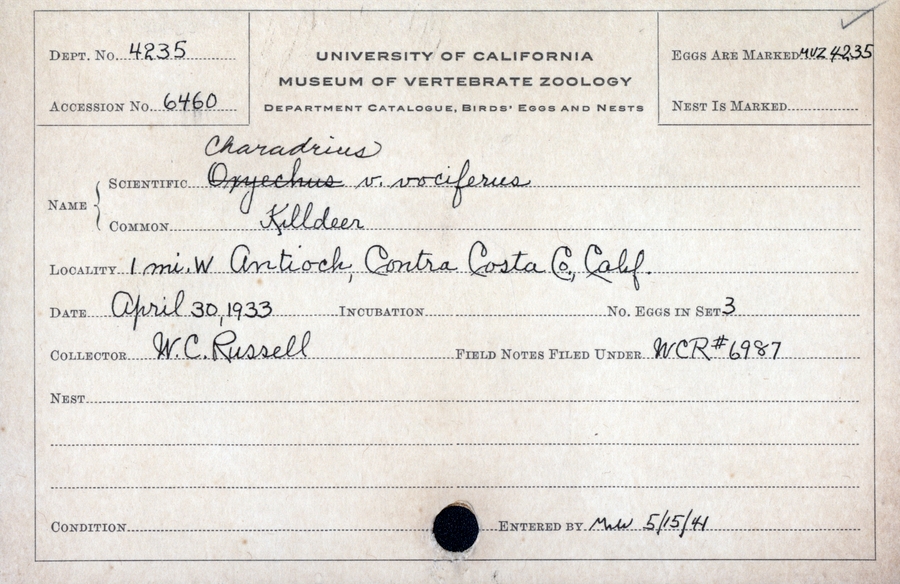 DEPT. NO. 4235
ACCESSION NO. 6460
UNIVERSITY OF CALIFORNIA
MUSEUM OF VERTEBRATE ZOOLOGY
DEPARTMENT CATALOGUE, BIRDS' EGGS AND NESTS
EGGS ARE MARKED MVZ 4235
NEST IS MARKED
Charadrius
NAME { SCIENTIFIC Oxyechus v. vociferus
COMMON Killdeer
LOCALITY 1 mi. W Antioch, Contra Costa Co., Calif.
DATE April 30, 1933 INCUBATION NO. EGGS IN SET 3
COLLECTOR W. C. Russell FIELD NOTES FILED UNDER WCR #6987
NEST
CONDITION ENTERED BY 5/15/41